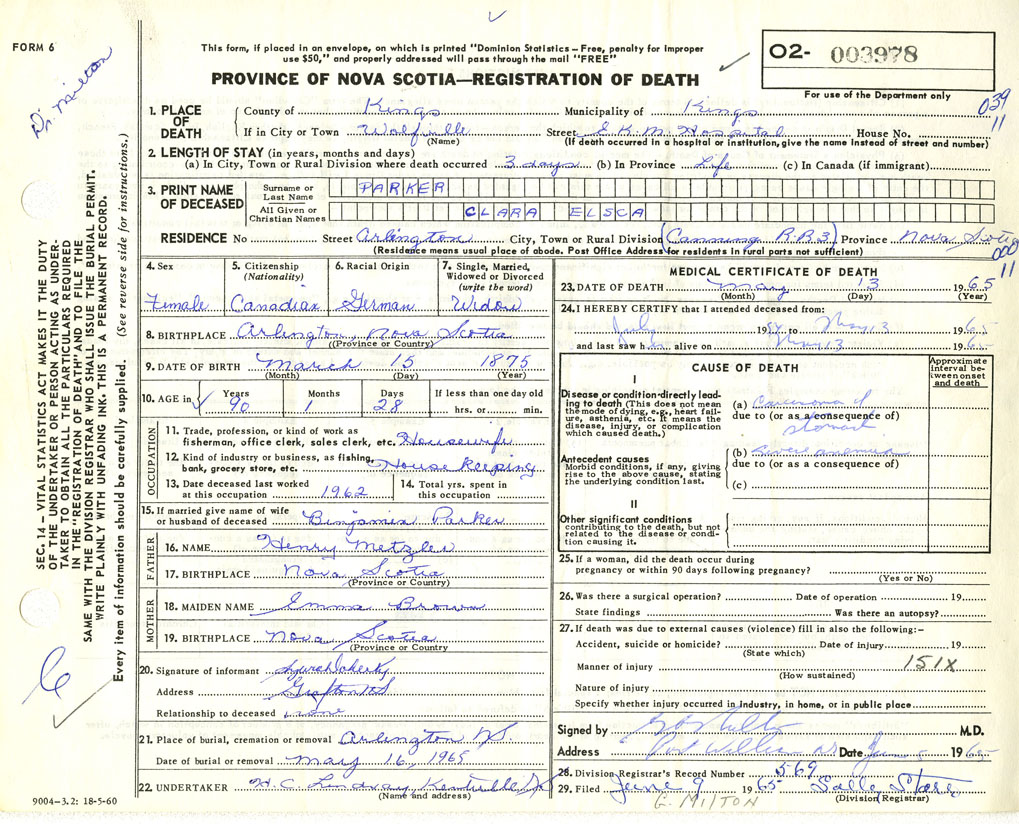 FORM 6
Dr. Milton
This form, if placed in an envelope, on which is printed "Dominion Statistics – Free, penalty for improper
use $50," and properly addressed will pass through the mail "FREE"
PROVINCE OF NOVA SCOTIA—REGISTRATION OF DEATH
O2- 003978
For use of the Department only
039
11
1. PLACE OF DEATH
County of Kings Municipality of Kings
If in City or Town Wolfville Street E.K.M. Hospital House No.
(Name) (If death occurred in a hospital or institution, give the name instead of street and number)
2. LENGTH OF STAY (in years, months and days)
(a) In City, Town or Rural Division where death occurred 3 days (b) In Province Life (c) In Canada (if immigrant)
3. PRINT NAME OF DECEASED
Surname or Last Name PARKER
All Given or Christian Names CLARA ELSCA
RESIDENCE No Street Arlington City, Town or Rural Division (Canning R.R.3) Province Nova Scotia
(Residence means usual place of abode. Post Office Address for residents in rural parts not sufficient)
000
11
4. Sex Female
5. Citizenship (Nationality) Canadian
6. Racial Origin German
7. Single, Married, Widowed or Divorced (write the word) Widow
8. BIRTHPLACE Arlington, Nova Scotia
(Province or Country)
9. DATE OF BIRTH March 15 1875
(Month) (Day) (Year)
10. AGE in Years 90 Months 1 Days 28 If less than one day old hrs. or min.
OCCUPATION
11. Trade, profession, or kind of work as
fisherman, office clerk, sales clerk, etc. Housewife
12. Kind of industry or business, as fishing,
bank, grocery store, etc. House keeping
13. Date deceased last worked at this occupation 1962
14. Total yrs. spent in this occupation
15. If married give name of wife
or husband of deceased Benjamin Parker
FATHER
16. NAME Henry Metzler
17. BIRTHPLACE Nova Scotia
(Province or Country)
MOTHER
18. MAIDEN NAME Emma Brown
19. BIRTHPLACE Nova Scotia
(Province or Country
20. Signature of informant
Address Grafton NS
Relationship to deceased none
21. Place of burial, cremation or removal Arlington N.S.
Date of burial or removal May 16, 1965
22. UNDERTAKER H.C. Lindsay, Kentville NS
(Name and address)
MEDICAL CERTIFICATE OF DEATH
23. DATE OF DEATH May 13 1965
(Month) (Day) (Year)
24. I HEREBY CERTIFY that I attended deceased from:
July 19 to May 13 1965
and last saw h alive on May 13 1965
CAUSE OF DEATH
Approximate interval between onset and death
I
Disease or condition directly leading to death (This does not mean the mode of dying, e.g., heart failure, asthenia, etc. It means the disease, injury, or complication which caused death.)
(a) Carcinoma of
due to (or as a consequence of)
stomach
Antecedent causes
Morbid conditions, if any, giving rise to the above cause, stating the underlying condition last.
(b) Severe anemia
due to (or as a consequence of)
(c)
II
Other significant conditions
contributing to the death, but not related to the disease or condition causing it.
25. If a woman, did the death occur during
pregnancy or within 90 days following pregnancy?
(Yes or No)
26. Was there a surgical operation? Date of operation 19
State findings Was there an autopsy?
27. If death was due to external causes (violence) fill in also the following:–
Accident, suicide or homicide? Date of injury 19
(State which)
Manner of injury 151X
(How sustained)
Nature of injury
Specify whether injury occurred in industry, in home, or in public place
Signed by M.D.
Address Port Williams NS Date June 1965
28. Division Registrar's Record Number 569
29. Filed June 9 1965 Starr
(Division Registrar)
G. MILTON
SEC. 14 – VITAL STATISTICS ACT MAKES IT THE DUTY
OF THE UNDERTAKER OR PERSON ACTING AS UNDER-
TAKER TO OBTAIN ALL THE PARTICULARS REQUIRED
IN THE "REGISTRATION OF DEATH" AND TO FILE THE
SAME WITH THE DIVISION REGISTRAR WHO SHALL ISSUE THE BURIAL PERMIT.
WRITE PLAINLY WITH UNFADING INK. THIS IS A PERMANENT RECORD.
Every item of information should be carefully supplied. (See reverse side for instructions.)
9004–3.2: 18-5-60